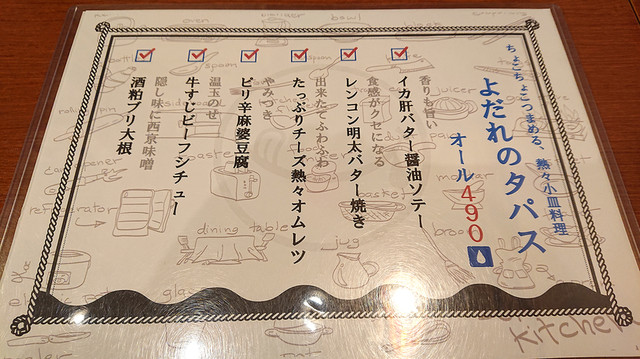 ちょこちょこつまめる、熱々小皿料理
よだれのタパス
オール490
香りも旨い
イカ肝バター醤油ソテー
食感がクセになる
レンコン明太バター焼き
出来たてふわふわ
たっぷりチーズ熱々オムレツ
やみつき
ピリ辛麻婆豆腐
温玉のせ
牛すじビーフシチュー
隠し味に西京味噌
酒粕ブリ大根
oven
bowl
spoon
juicer
toaster
refrigerator
dining table
jug
basket
kitchen